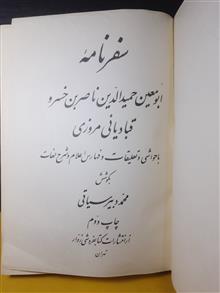 سفرنامه
ابومعین حمیدالدین ناصر بن خسرو
قبادیانی مروزی
با حواشی و تعلیقات و فهارس اعلام و شرح لغات
بکوشش
محمد دبیرسیاقی
چاپ دوم
از انتشارات کتابفروشی زوار
تهران